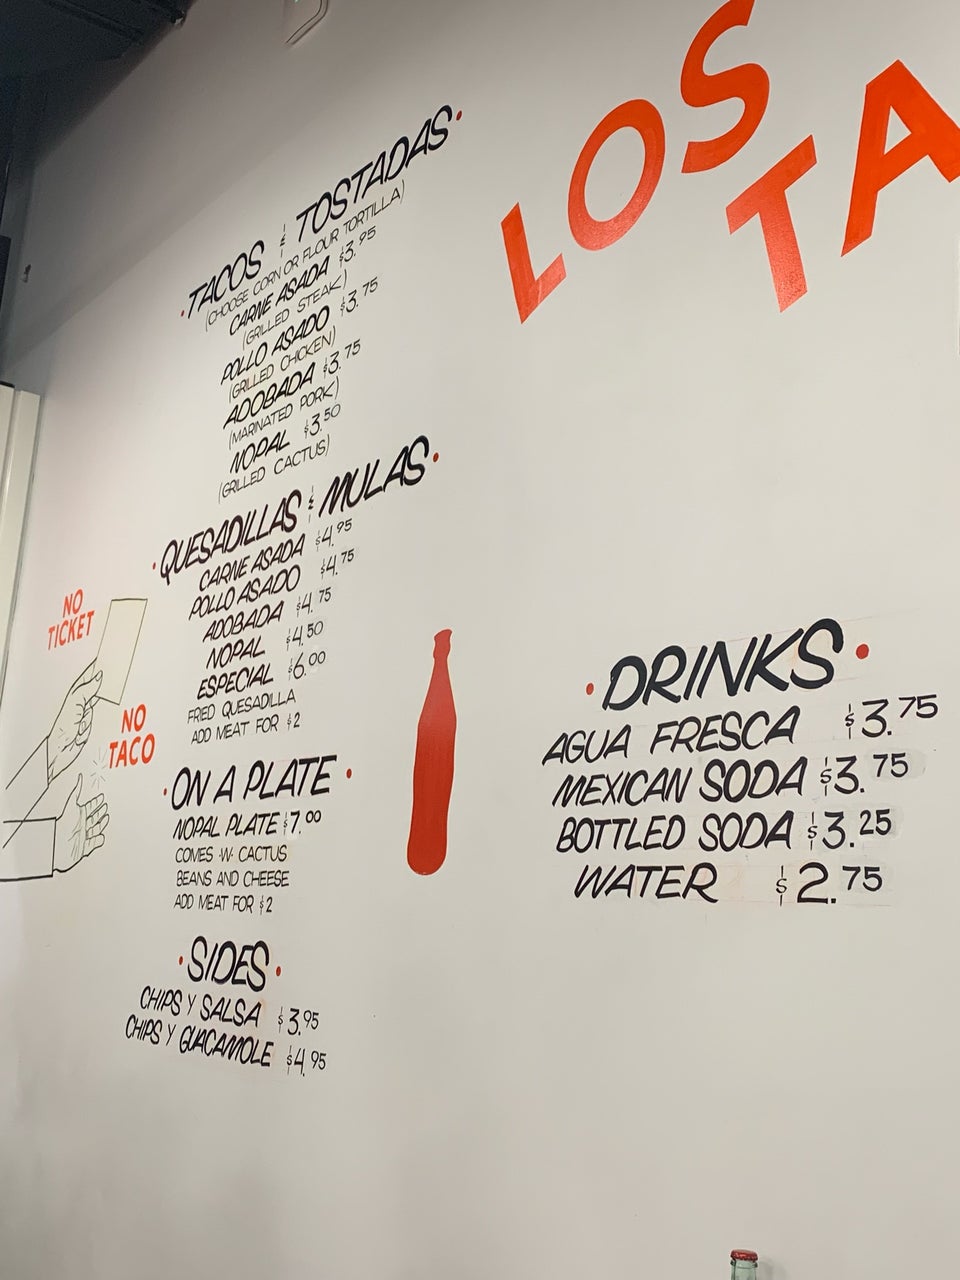 LOS
TA
·TACOS & TOSTADAS·
(CHOOSE CORN OR FLOUR TORTILLA)
CARNE ASADA $3.95
(GRILLED STEAK)
POLLO ASADO $3.75
(GRILLED CHICKEN)
ADOBADA $3.75
(MARINATED PORK)
NOPAL $3.50
(GRILLED CACTUS)
·QUESADILLAS & MULAS·
CARNE ASADA $4.95
POLLO ASADO $4.75
ADOBADA $4.75
NOPAL $4.50
ESPECIAL $6.00
FRIED QUESADILLA
ADD MEAT FOR $2
NO
TICKET
NO
TACO
·ON A PLATE·
NOPAL PLATE $7.00
COMES -W- CACTUS
BEANS AND CHEESE
ADD MEAT FOR $2
·SIDES·
CHIPS Y SALSA $3.95
CHIPS Y GUACAMOLE $4.95
·DRINKS·
AGUA FRESCA $3.75
MEXICAN SODA $3.75
BOTTLED SODA $3.25
WATER $2.75